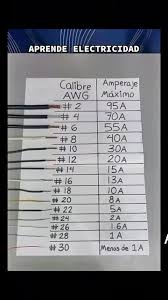 APRENDE ELECTRICIDAD
Calibre AWG
Amperaje Máximo
#2 95A
#4 70A
#6 55A
#8 40A
#10 30A
#12 20A
#14 15A
#16 13A
#18 10A
#20 8A
#22 5A
#24 2A
#26 1.6A
#28 1A
#30 Menos de 1A